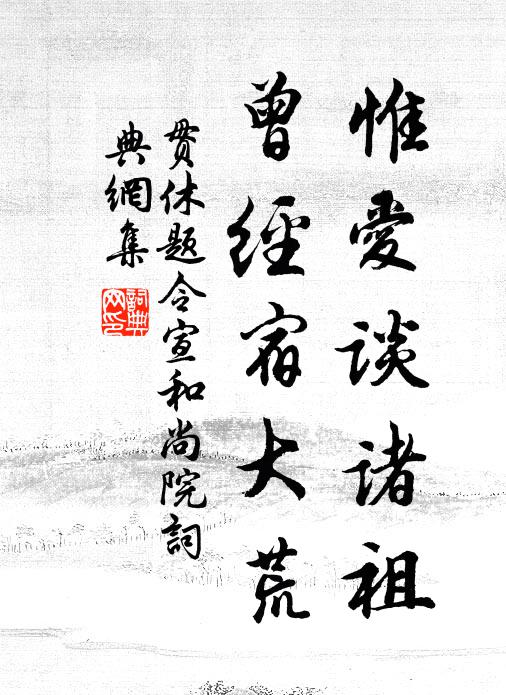 惟愛談诸祖
曾經宿大荒
贯休题令宣和尚院詞
典網集
詞典
网印